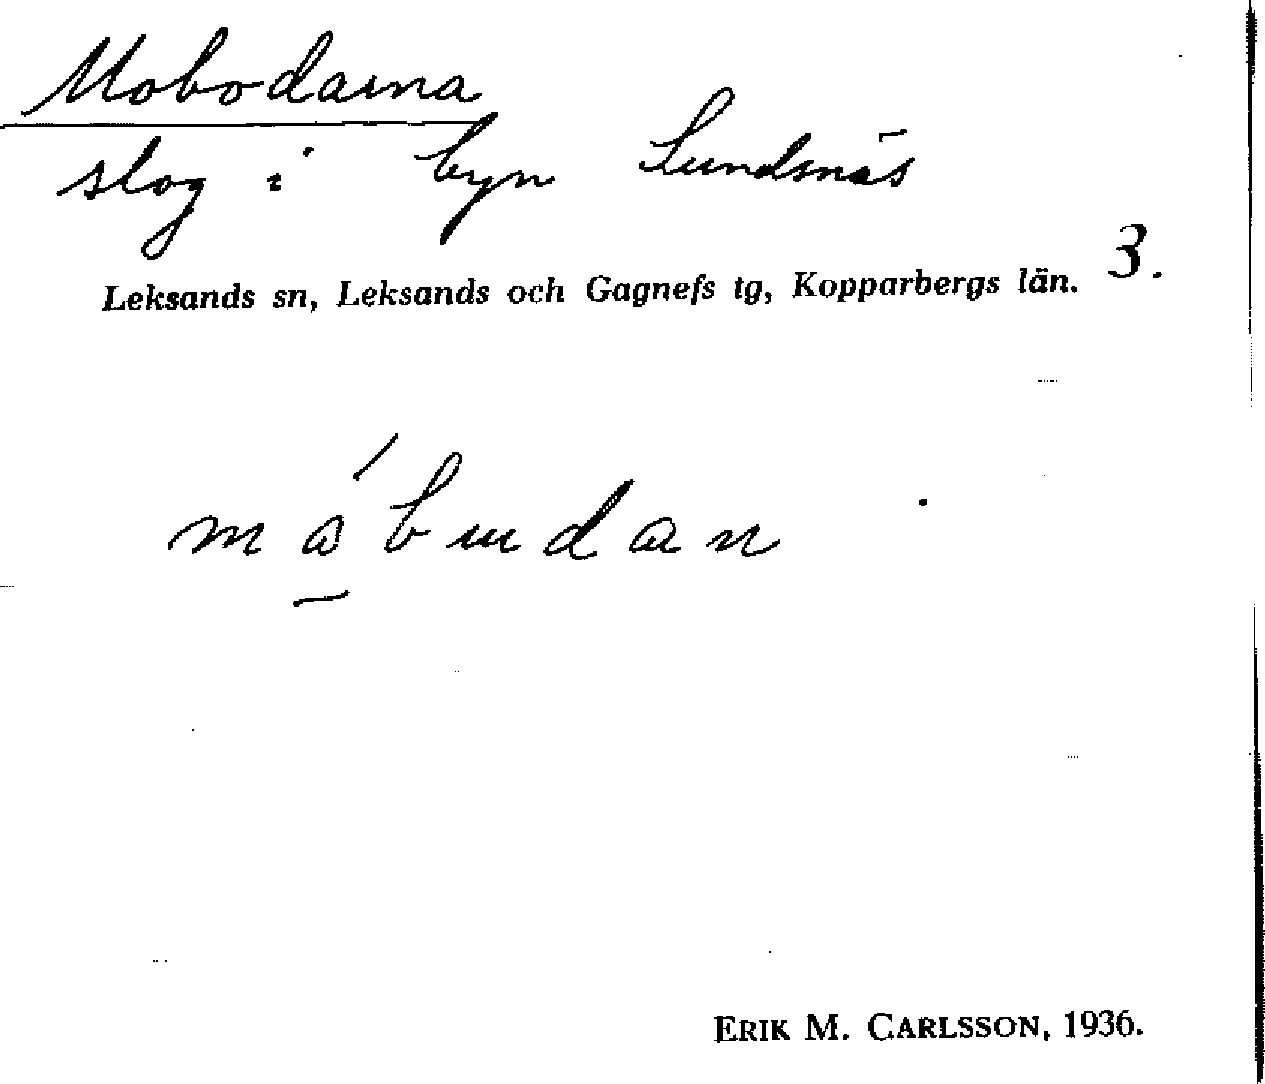 Mobodarna
slog i byn Sundsnäs
Leksands sn, Leksands och Gagnefs tg, Kopparbergs län. 3.
ERIK M. CARLSSON, 1936.